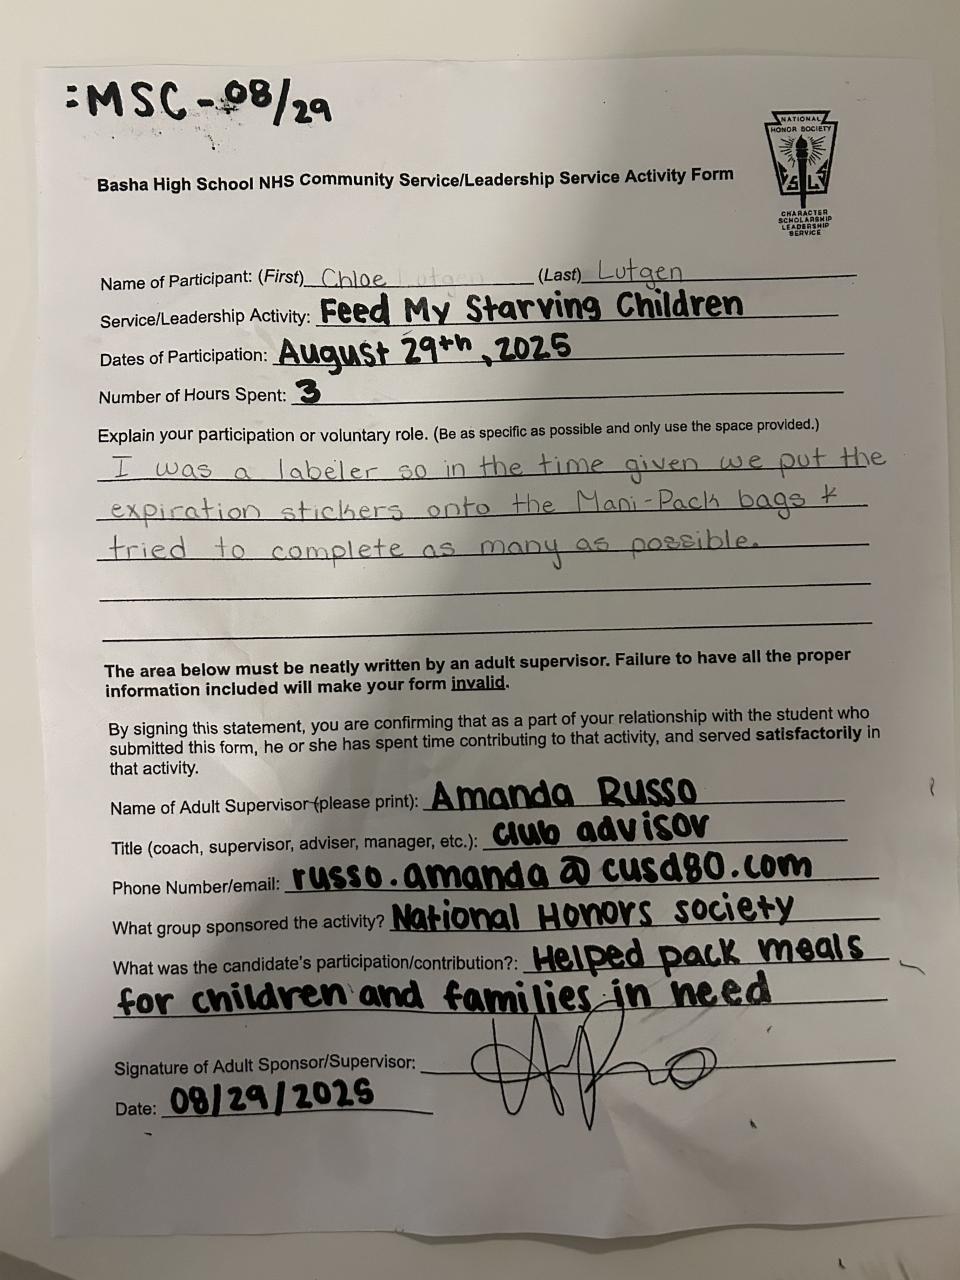 :MSC-08/29
NATIONAL
HONOR SOCIETY
S L S
CHARACTER
SCHOLARSHIP
LEADERSHIP
SERVICE
Basha High School NHS Community Service/Leadership Service Activity Form
Name of Participant: (First) Chloe (Last) Lutgen
Service/Leadership Activity: Feed My Starving Children
Dates of Participation: August 29th, 2025
Number of Hours Spent: 3
Explain your participation or voluntary role. (Be as specific as possible and only use the space provided.)
I was a labeler so in the time given we put the
expiration stickers onto the Mani-Pack bags &
tried to complete as many as possible.
The area below must be neatly written by an adult supervisor. Failure to have all the proper
information included will make your form invalid.
By signing this statement, you are confirming that as a part of your relationship with the student who
submitted this form, he or she has spent time contributing to that activity, and served satisfactorily in
that activity.
Name of Adult Supervisor (please print): Amanda Russo
Title (coach, supervisor, adviser, manager, etc.): club advisor
Phone Number/email: russo.amanda@cusd80.com
What group sponsored the activity? National Honors society
What was the candidate's participation/contribution?: Helped pack meals
for children and families in need
Signature of Adult Sponsor/Supervisor:
Date: 08/29/2025